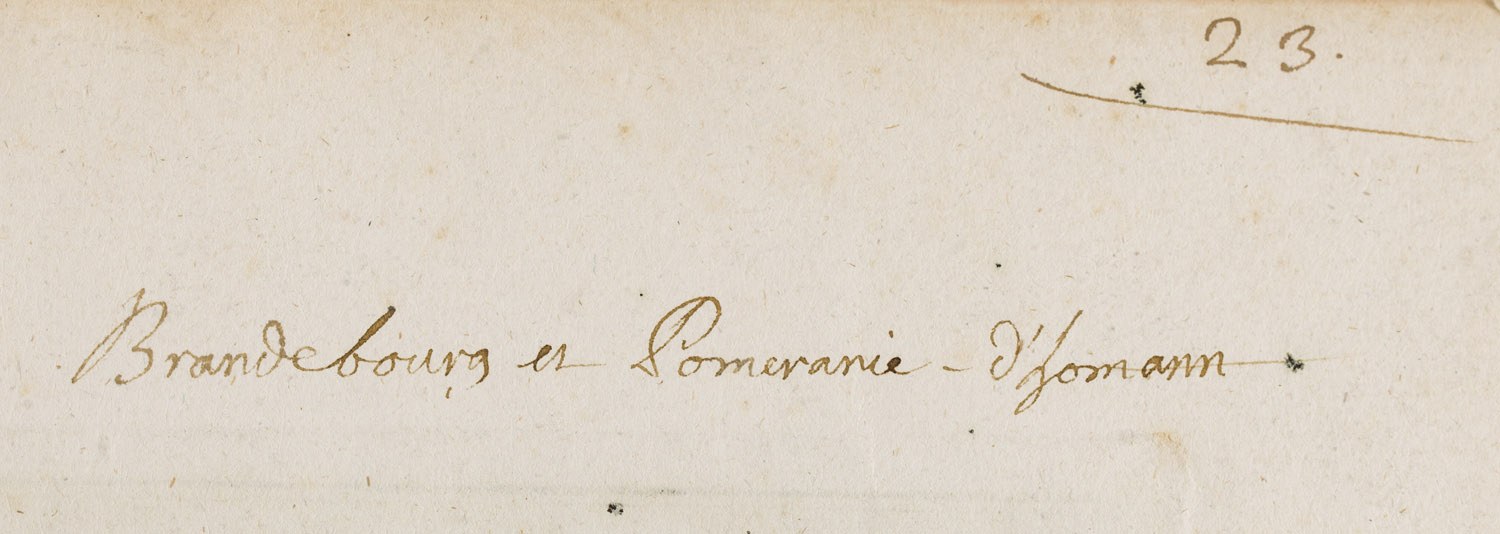 23.
Brandebourg et Pomeranie - d'homann